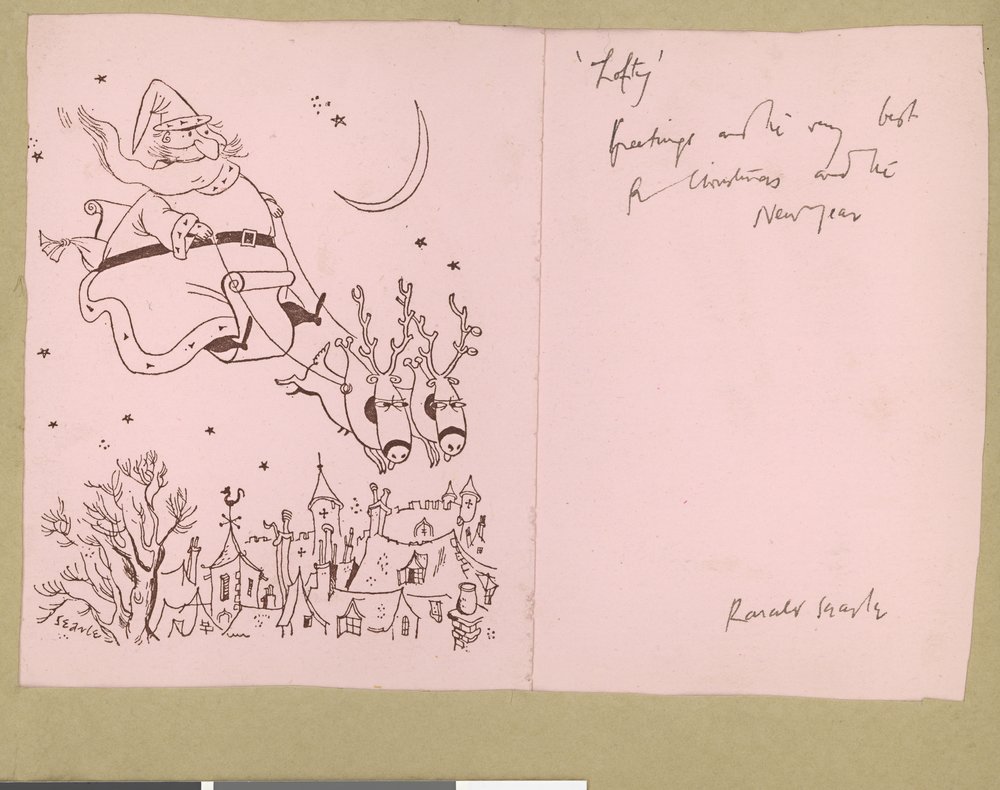 SEARLE
'Lofty'
Greetings and the very best
for Christmas and the
New Year
Ronald Searle